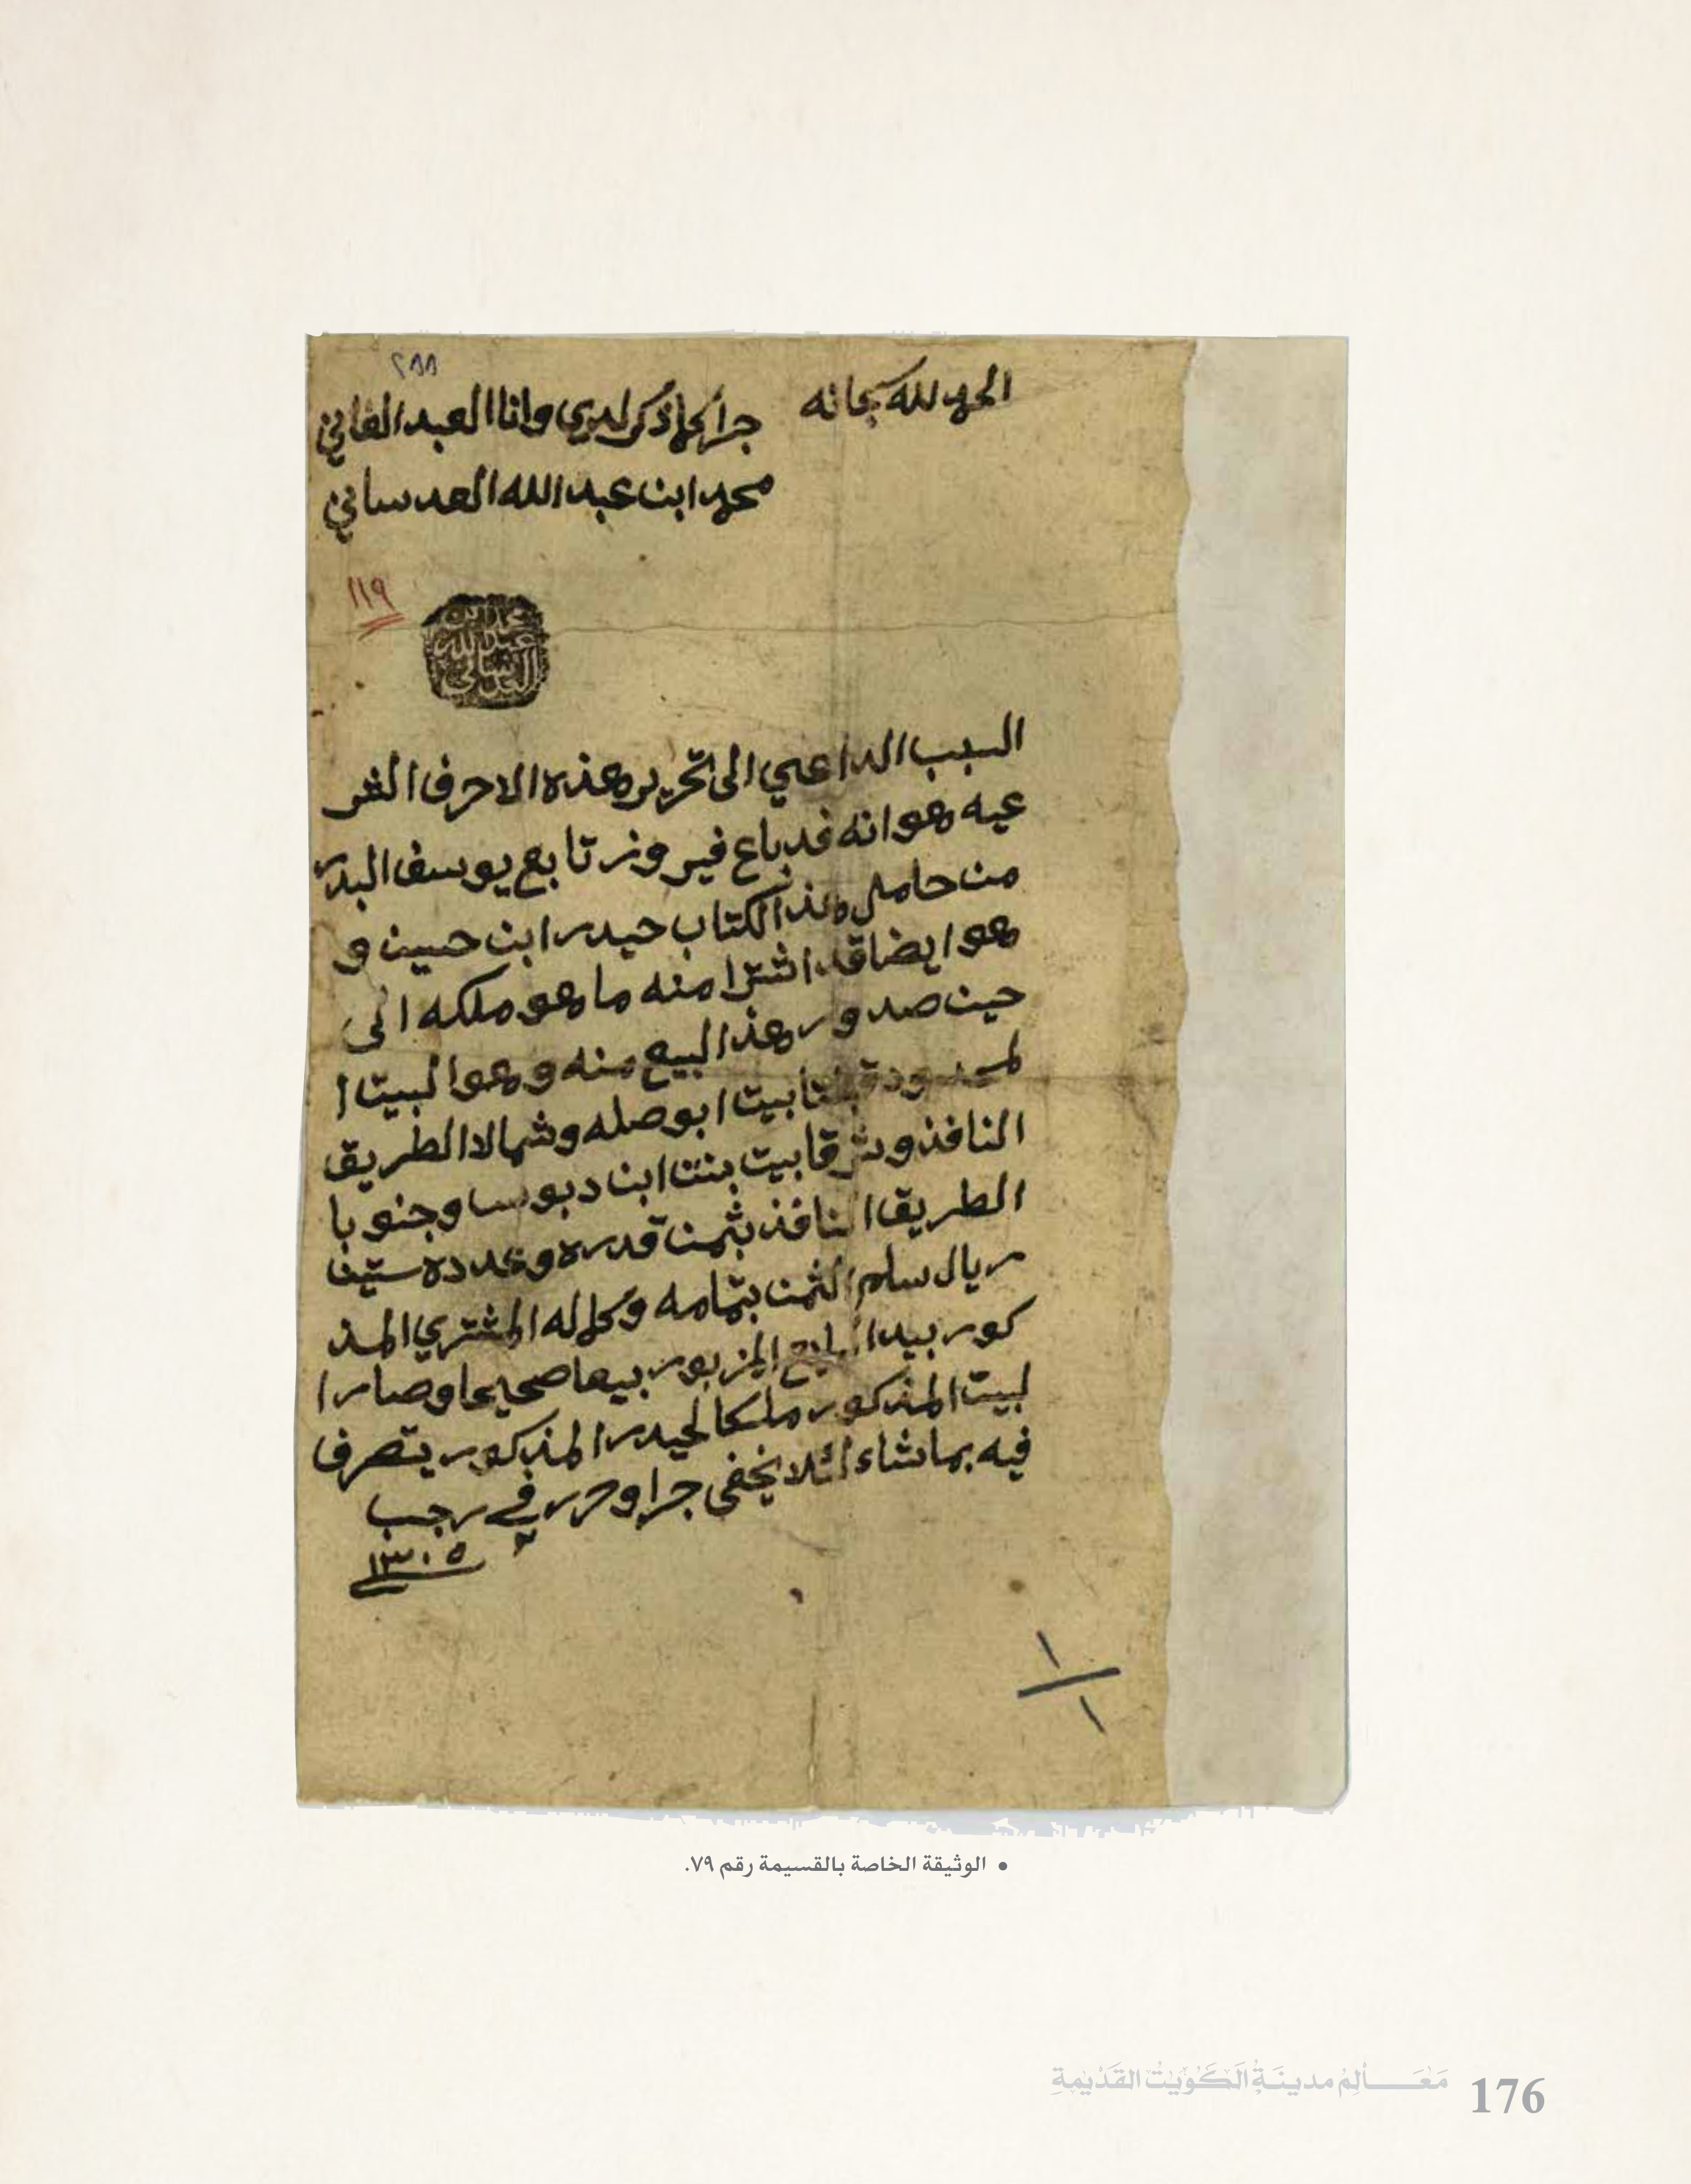 ٢٨٨
الحمد لله سبحانه
جرا كما ذكر لدي وانا العبد الفاني
محمد ابن عبدالله العدساني
١١٩
محمد ابن
عبدالله
العدساني
السبب الداعي الى تحرير هذه الاحرف الشر
عيه هو انه قد باع فيروز تابع يوسف البدر
من حامل هذا الكتاب حيدر ابن حسين و
هو ايضا قد اشترا منه ما هو ملكه الى
حين صدور هذا البيع منه وهو البيت ا
لمحدود قبلتا بيت ابو صله وشمالا الطريق
النافذ وشرقا بيت بنت ابن دبوس وجنوبا
الطريق النافذ بثمن قدره وعدده ستين
ريال سلم الثمن بتمامه وكماله المشتري المذ
كور بيد البايع المزبور بيعا صحيحا وصار ا
لبيت المذكور ملكا لحيدر المذكور يتصرف
فيه بما شاء لئلا يخفى جرا وحرر في رجب
٢ ١٣٠٥
١
١
• الوثيقة الخاصة بالقسيمة رقم ٧٩.
مَعَـــالِمُ مدينَةِ الكُوَيْتِ القَدْيمةِ 176